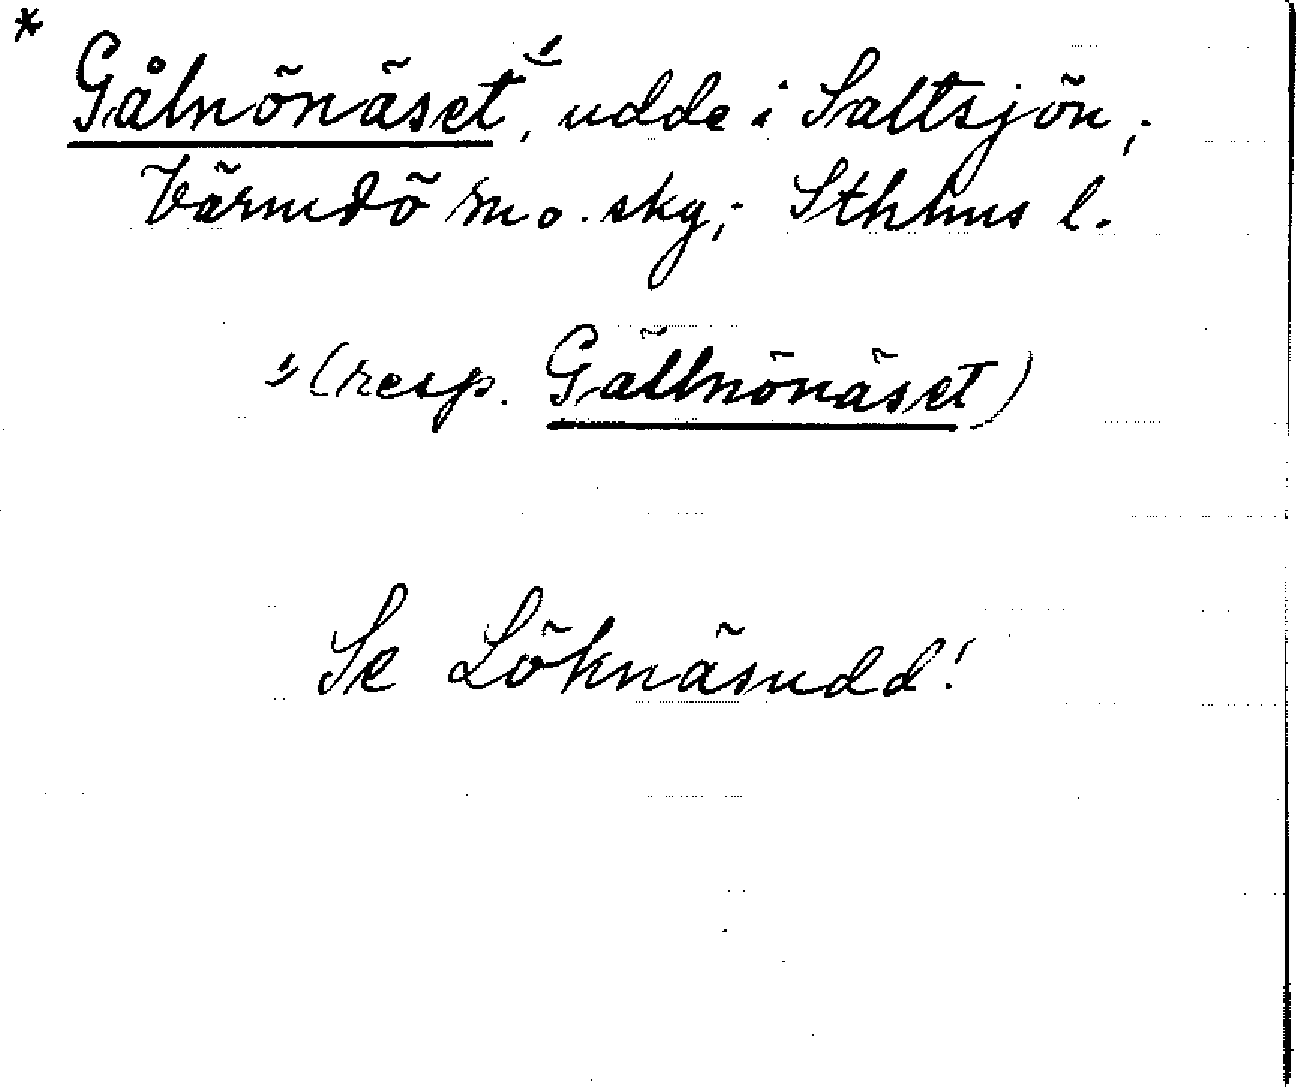 * Gålnönäset ¹⁾, udde i Saltsjön;
Värmdö m. o. skg; Sthlms l.
¹⁾ (resp. Gällnönäset)
Se Löknäsudd!